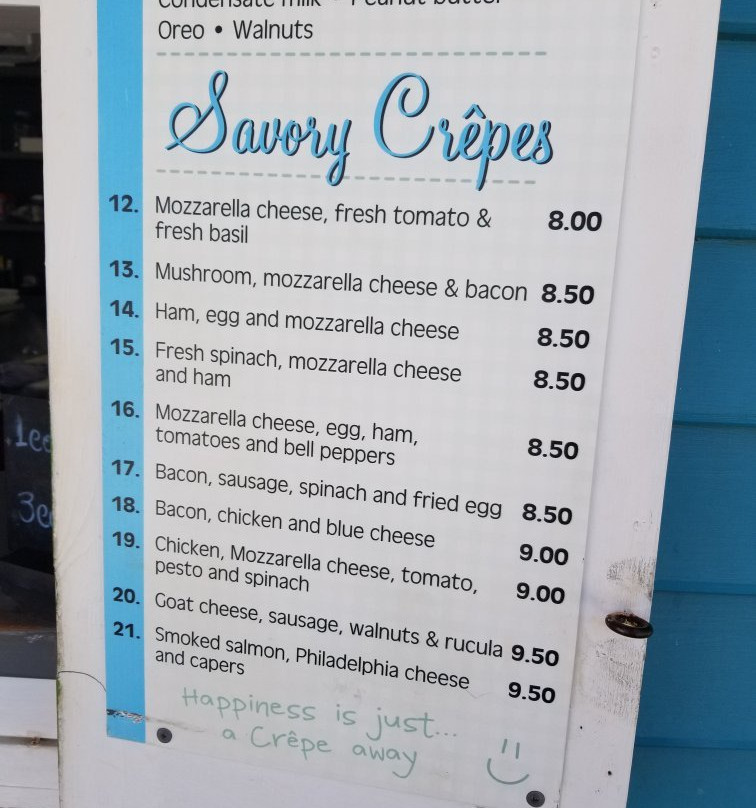 Condensate milk • Peanut butter
Oreo • Walnuts
Savory Crêpes
12. Mozzarella cheese, fresh tomato & 8.00
fresh basil
13. Mushroom, mozzarella cheese & bacon 8.50
14. Ham, egg and mozzarella cheese 8.50
15. Fresh spinach, mozzarella cheese 8.50
and ham
16. Mozzarella cheese, egg, ham, 8.50
tomatoes and bell peppers
17. Bacon, sausage, spinach and fried egg 8.50
18. Bacon, chicken and blue cheese 9.00
19. Chicken, Mozzarella cheese, tomato, 9.00
pesto and spinach
20. Goat cheese, sausage, walnuts & rucula 9.50
21. Smoked salmon, Philadelphia cheese 9.50
and capers
Happiness is just...
a Crêpe away